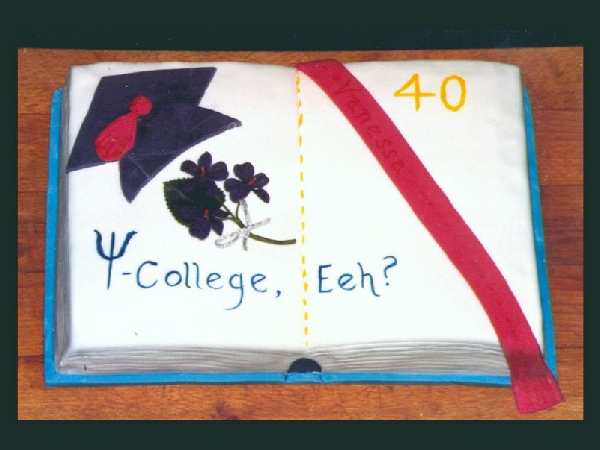 40
Vanessa
Ψ-College, Eeh?